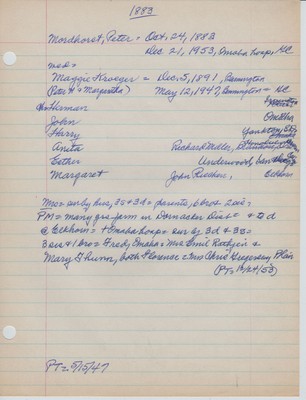 1883
Mordhorst, Peter = Oct. 24, 1883
Dec 21, 1953, Omaha hosp, HC
med =
Maggie Kroeger = Dec 5, 1891, Bennington
(Peter H = Margaretha) May 12, 1947, Bennington = HC
Herman
John Omaha
Harry Yankton SD
Anita Richard Miller,
Esther Underwood,
Margaret John
Mo = sur by hus, 3s & 3d = parents, 6 bros 2 sis =
PM = many yrs farm in Bornacker Dist = & d
@ Elkhorn = + Omaha hosp = sur by 3d & 3s =
3 sis & 1 bro = Fred, Omaha = Mrs Emil Rathjen &
Mary Glunn, both Florence = Mrs Chris Gregersen, Plain
(PT = 12/24/53)
PT = 5/15/47